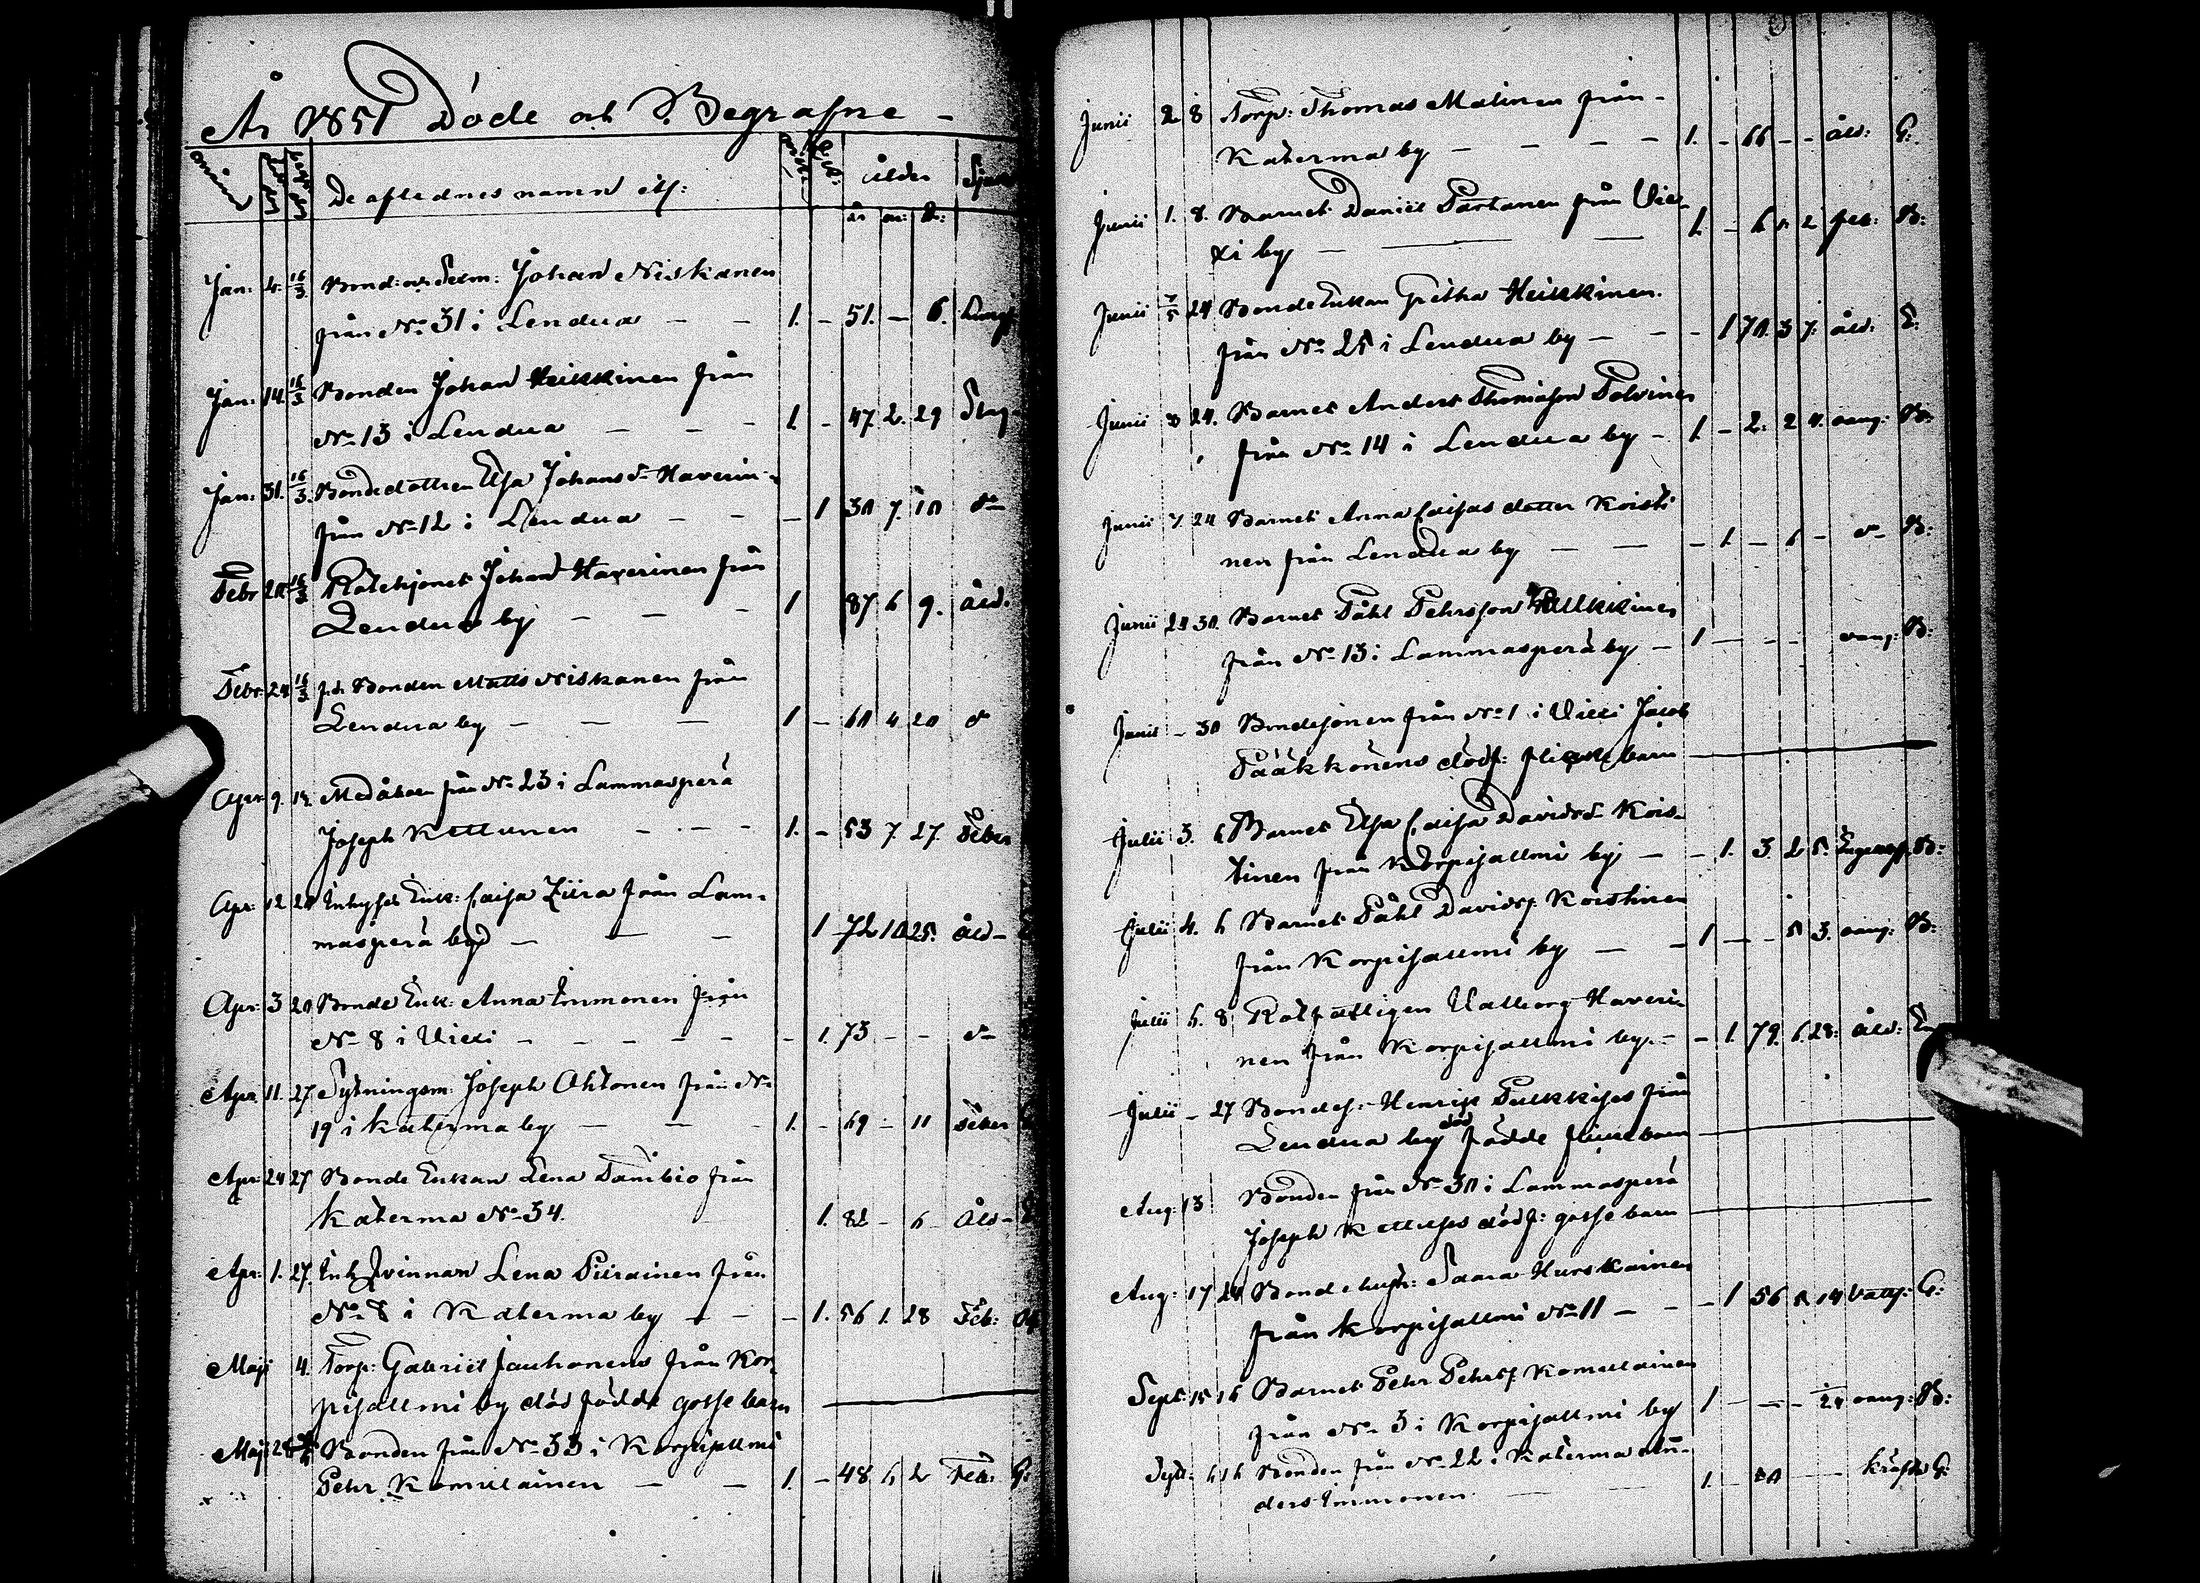 År 1851 Döde och Begrafne -
De aflednes namn etc:
Ålder
år m: d:
Jan: 4. 16/3 Bond: Johan Niskanen
från No 31 i Lendua - - 1. - 51. - 6. Lung
Jan: 14. 16/3 Bonden Johan Heikkinen från
No 13 i Lendua - - - 1. - 47. 2. 29
Jan: 31. 16/3 Bondedottren Elsa Johansd:r Haverin-
från No 12 i Lendua - - - 1 30 7. 10 d:o
Febr 20 16/3 Rotehjonet Johan Haverinen från
Lendua by - - - 1 87 6 9. åld.
Febr. 24 16/3 f.d. Bonden Matts Niskanen från
Lendua by - - - 1 - 60 4 20 d:o
Apr: 9. 13. Medåboen från No 23 i Lammasperä
Joseph Kettunen - - - 1. - 53 7. 27. Feber
Apr: 12 20 Inhyses Enk: Caisa Ziira från Lam-
masperä by - - - 1 72 10 25. åld-
Apr: 3 20 Bonde Enk: Anna Immonen från
No 8 i Viexi - - - - - 1. 73 - - d:o
Apr: 11. 27 Sytningsm: Joseph Ahtonen från No
19 i Katerma by - - - 1. - 69 - 11 Feber
Apr: 24 27 Bonde Enkan Lena Tambio från
Katerma No 34. 1. 82 - 6 - Åld-
Apr: 1. 27. Inh Qvinnan Lena Piirainen från
No 8 i Katerma by - - - 1. 56 1. 28 Feb:
Maji 4. Torp: Gabriel Jauhonens från Kor-
pisallmi by död födde gosse barn
Maji 28 Bonden från No 33 i Korpisallmi
Pehr Komulainen - - 1. - 48 6 2 Feb: G:
Junii 2 8 Torp: Thomas Malinen från -
Katerma by - - - - 1. - 66 - - åld: G:
Junii 1. 8. Barnet Daniel Partanen från Vie-
xi by - - - 1. - 6 2 feb: B:
Junii 24 Bonde Enkan Gretha Heikkinen.
från No 25 i Lendua by - - - 1 70 3 7. åld: E:
Junii 3 24. Barnet Anders Thomasson Polvinen
från No 14 i Lendua by - 1. - 2. 2 4. oang: B:
Junii 24 Barnet Anna Caisas dotter Koisti
nen från Lendua by - - - 1. - 6 - d:o B:
Junii 24 30. Barnet Påhl Pehrsson Pulkkinen
från No 13 i Lammasperä by - 1 - - - oang: B:
Junii - 30 Bondesonen från No 1 i Viexi Jacob
Pääkkönens dödf: flicke barn
Julii 3. 6 Barnet Elsa Caisa Davidsd:r Kois-
tinen från Korpisallmi by - - 1. 3. 2 5. B:
Julii 4. 6 Barnet Påhl Davidss Koistinen
från Korpisallmi by - - 1 - - 5 3. oang: B:
Julii 6. 8 Rotfattigen Valborg Haveri-
nen från Korpisallmi by. - - 1. 79. 6. 28: åld: E
Julii - 27 Bondes: Henrik Pulkkises från
Lendua by död födde flicke barn
Aug: 13 Bonden från No 30 i Lammasperä
Joseph Kettuses dödf: gosse barn
Aug: 17 24 Bonde hustr: Saara Hurskainen
från Korpisallmi No 11 - - - 1 56 8 14 Vatts: G:
Sept: 15 16 Barnet Pehr Pehrss Komulainen
från No 3 i Korpisallmi by 1 - - - 1/24 oang: B:
Sept: 6 16 Bonden från No 22 i Katerma An-
ders Immonen 1. - 50 - - kräfta G: